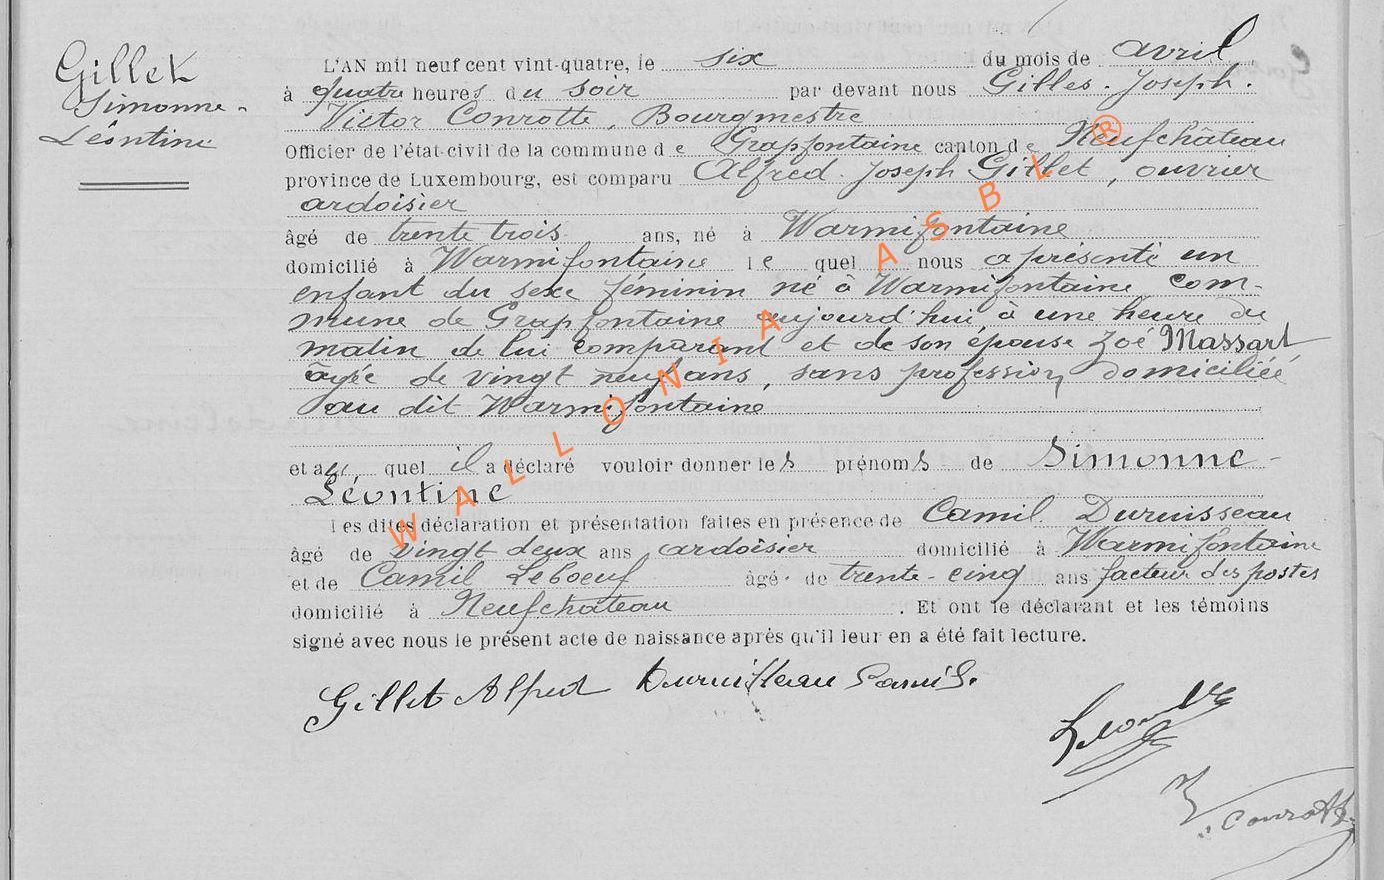 Gillet
Simonne-
Léontine
L'AN mil neuf cent vint-quatre, le six du mois de avril
à quatre heures du soir par devant nous Gilles-Joseph-
Victor Conrotte, Bourgmestre
Officier de l'état-civil de la commune de Grapfontaine canton de Neufchâteau
province de Luxembourg, est comparu Alfred-Joseph Gillet, ouvrier
ardoisier
âgé de trente trois ans, né à Warmifontaine
domicilié à Warmifontaine lequel nous a présenté un
enfant du sexe féminin né à Warmifontaine com-
mune de Grapfontaine aujourd'hui à une heure du
matin de lui comparant et de son épouse Zoé Massart
âgée de vingt neuf ans, sans profession domiciliée
au dit Warmifontaine
et au quel il a déclaré vouloir donner les prénoms de Simonne-
Léontine
Les dites déclaration et présentation faites en présence de Camil Duruisseau
âgé de vingt deux ans ardoisier domicilié à Warmifontaine
et de Camil Leboeuf âgé de trente-cinq ans facteur des postes
domicilié à Neufchateau. Et ont le déclarant et les témoins
signé avec nous le présent acte de naissance après qu'il leur en a été fait lecture.
Gillet Alfred Duruisseau Camil.
V. Conrotte
WALLONIA ASBL ®